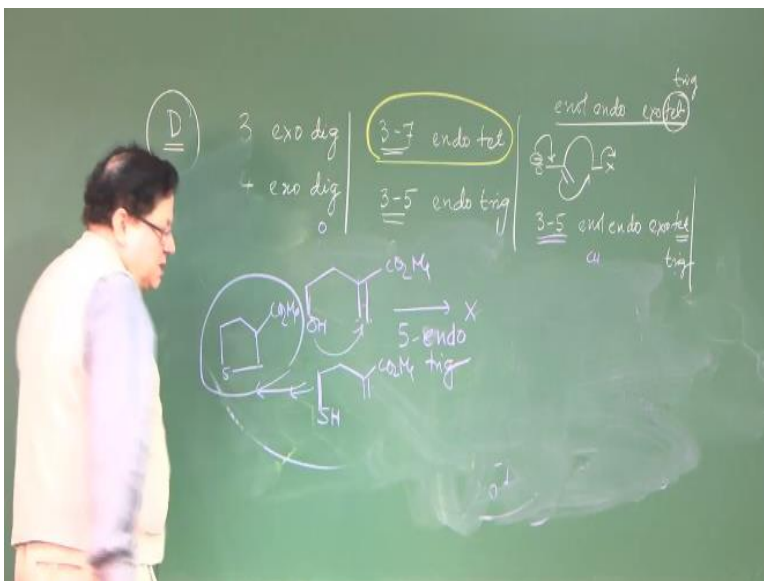 D
3 exo dig
4 exo dig
3-7 endo tet
3-5 endo trig
trig
enol endo exo tet
X
3-5 enol endo exo tet
trig
CO2Me
CO2Me
OH
X
5-endo
trig
S
CO2Me
SH